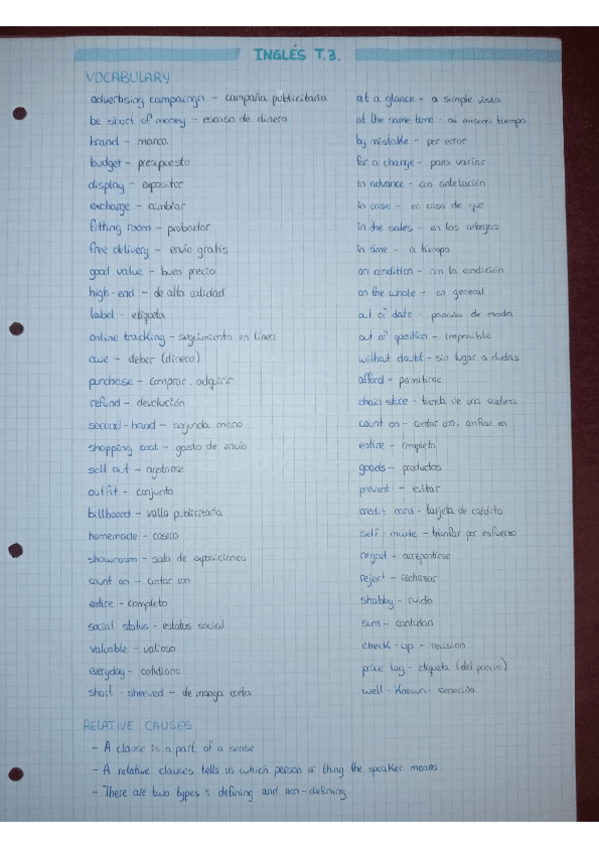 INGLÉS T.3.
VOCABULARY
advertising campaings - campaña publicitaria
be short of money - escaso de dinero
brand - marca
budget - presupuesto
display - expositor
exchange - cambiar
fitting room - probador
free delivery - envío gratis
good value - buen precio
high-end - de alta calidad
label - etiqueta
online tracking - seguimiento en línea
owe - deber (dinero)
purchase - comprar, adquirir
refund - devolución
second-hand - segunda mano
shopping cost - gasto de envío
sell out -
outfit - conjunto
billboard - valla publicitaria
homemade - casero
showroom - sala de exposiciones
count on - contar con
entire - completo
social status - estatus social
valuable - valioso
everyday - cotidiano
short-sleeved - de manga corta
at a glance - a simple vista
at the same time - al mismo tiempo
by mistake - por error
for a change - para variar
in advance - con antelación
in case - en caso de que
in the sales - en las rebajas
in time - a tiempo
on condition - con la condición
on the whole - en general
out of date - pasado de moda
out of question - imposible
without doubt - sin lugar a dudas
afford - permitirse
chain store - tienda de una cadena
count on - contar con, confiar en
entire - completo
goods - productos
prevent - evitar
credit card - tarjeta de crédito
self-made - triunfar por esfuerzo
regret - arrepentirse
reject - rechazar
shabby -
sum - cantidad
check-up - revisión
price tag - etiqueta (del precio)
well-known - conocido
RELATIVE CAUSES
- A clause is a part of a sense
- A relative clauses tells us which person or thing the speaker means.
- There are two types: defining and non-defining